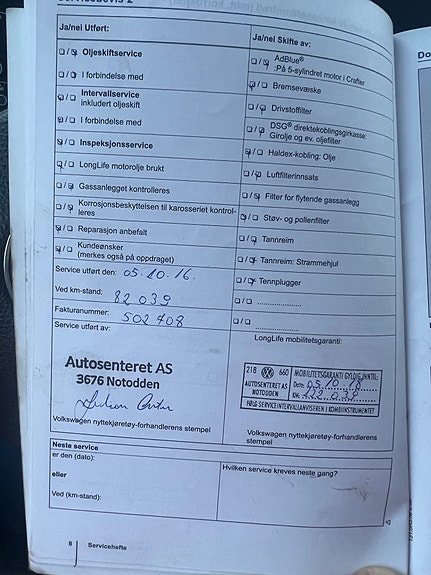 Servicebevis 2
Ja/nei Utført:
☐/☑ Oljeskiftservice
☐/☑ I forbindelse med
☑/☐ Intervallservice
inkludert oljeskift
☑/☐ I forbindelse med
☑/☐ Inspeksjonsservice
☑/☐ LongLife motorolje brukt
☐/☑ Gassanlegget kontrolleres
☐/☑ Korrosjonsbeskyttelsen til karosseriet kontrol-
leres
☑/☐ Reparasjon anbefalt
☑/☐ Kundeønsker
(merkes også på oppdraget)
Service utført den: 05.10.16.
Ved km-stand: 82 039
Fakturanummer: 502 408
Service utført av:
Autosenteret AS
3676 Notodden
Volkswagen nyttekjøretøy-forhandlerens stempel
Ja/nei Skifte av:
☐/☑ AdBlue®
:På 5-sylindret motor i Crafter
☑/☐ Bremsevæske
☐/☑ Drivstoffilter
☐/☑ DSG® direktekoblingsgirkasse:
Girolje og ev. oljefilter
☑/☐ Haldex-kobling: Olje
☐/☑ Luftfilterinnsats
☐/☑ Filter for flytende gassanlegg
☑/☐ Støv- og pollenfilter
☐/☑ Tannreim
☐/☑ Tannreim: Strammehjul
☐/☑ Tennplugger
☐/☐ ....................
☐/☐ ....................
LongLife mobilitetsgaranti:
218 VW 660 MOBILITETSGARANTI GYLDIG INNTIL:
AUTOSENTERET AS
NOTODDEN
Dato: 05.10.18
KM: 122 039
FØLG SERVICEINTERVALLANVISEREN I KOMBIINSTRUMENTET
Volkswagen nyttekjøretøy-forhandlerens
stempel
Neste service
er den (dato):
eller
Ved (km-stand):
Hvilken service kreves neste gang?
8 Servicehefte
Do